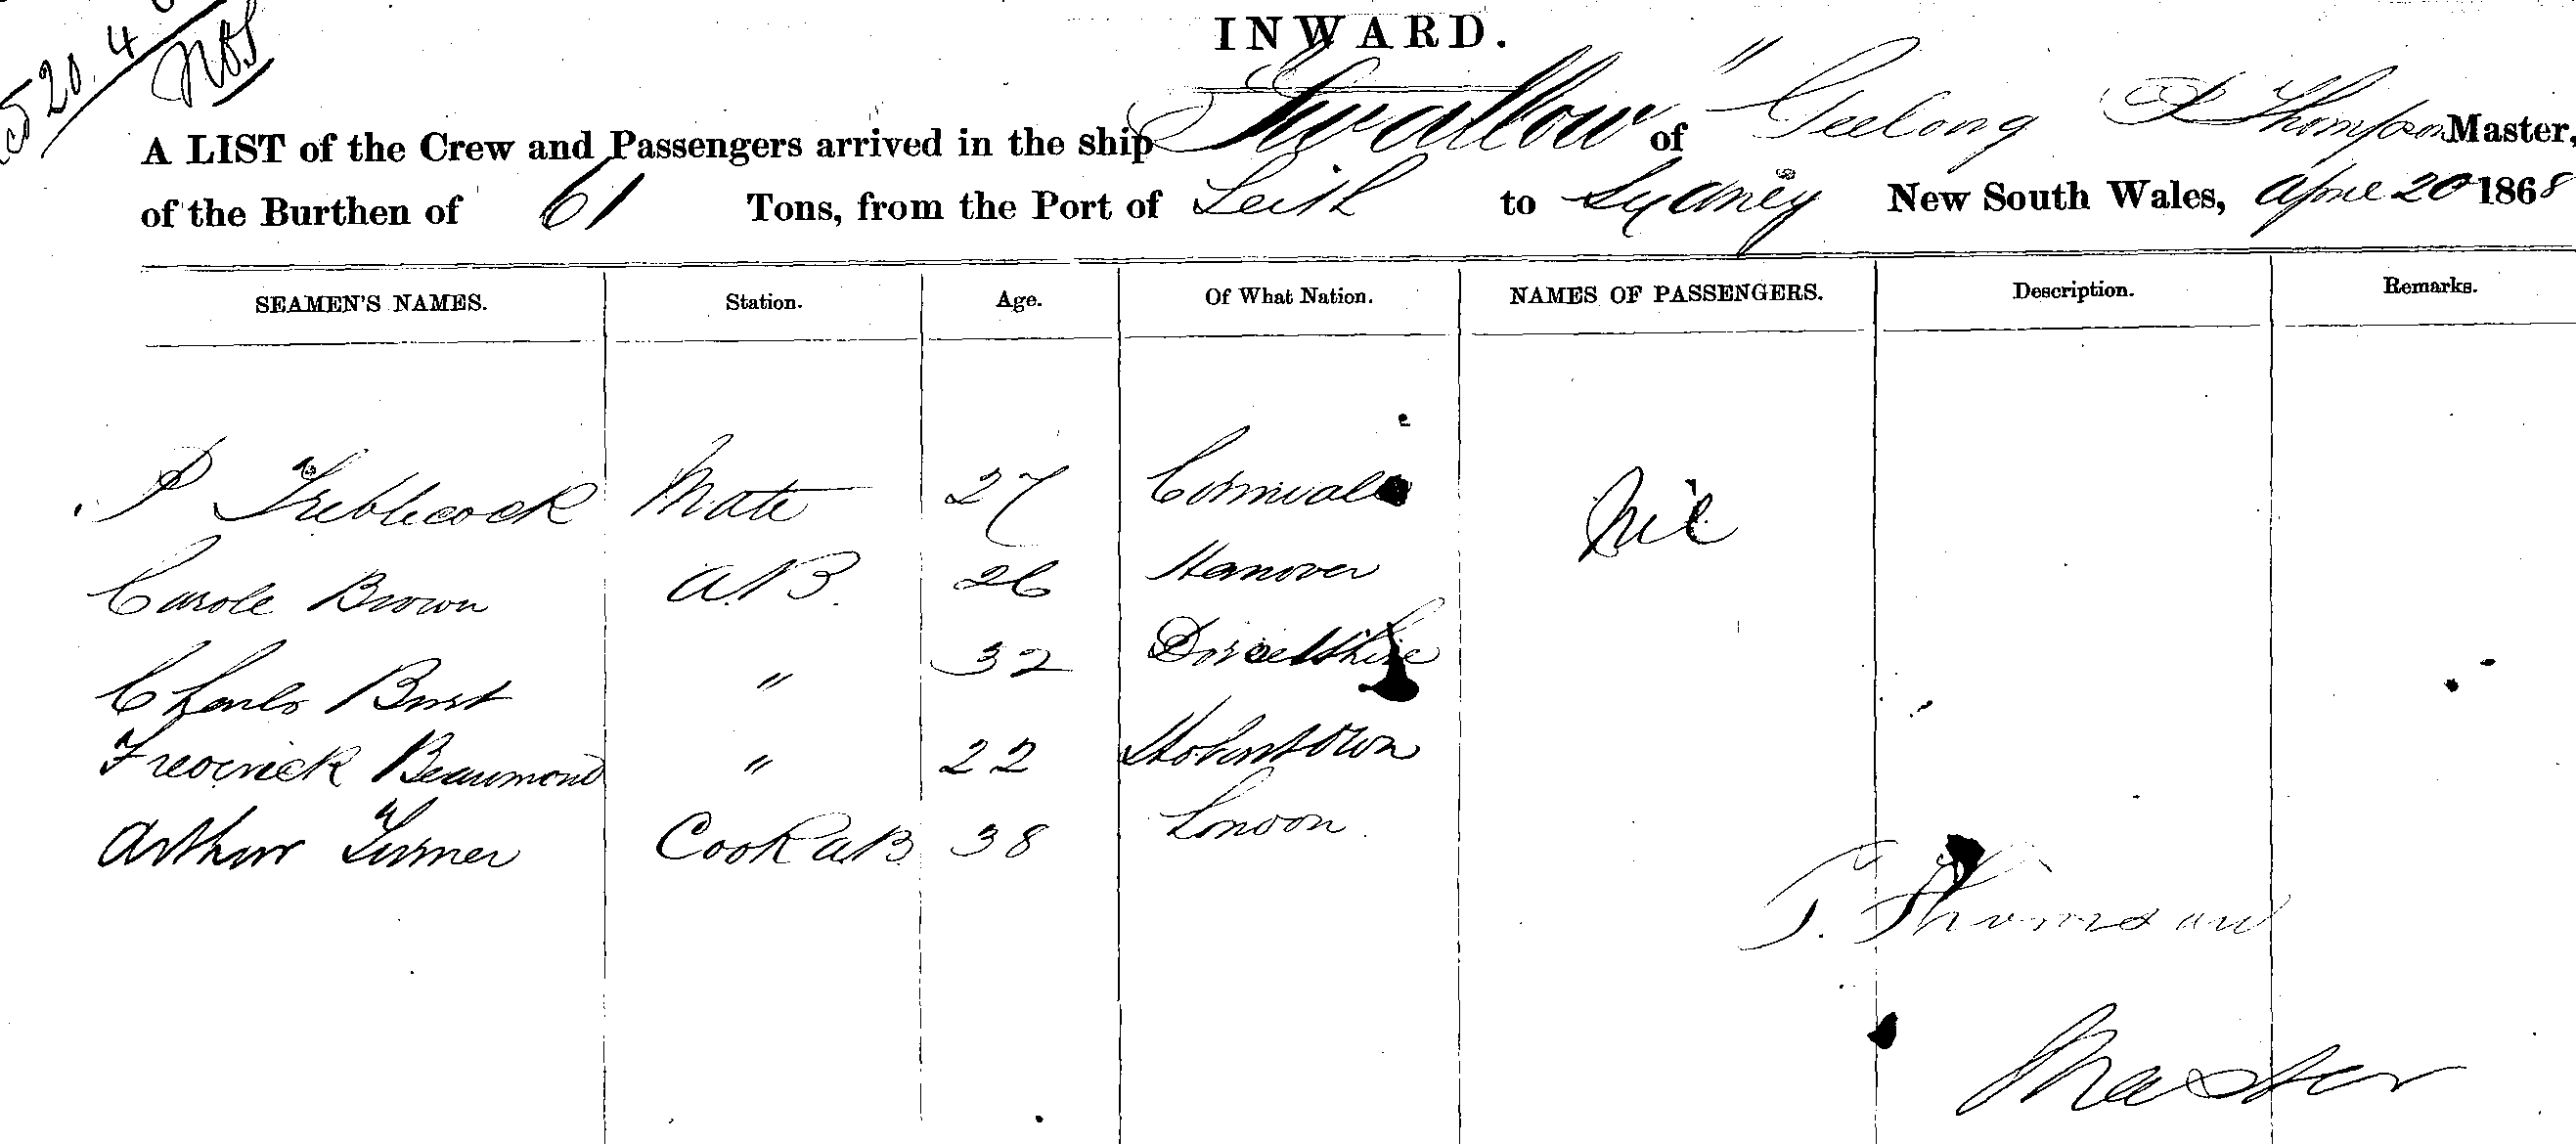 20.4
INWARD.
A LIST of the Crew and Passengers arrived in the ship Swallow " of Geelong Thompson Master,
of the Burthen of 61 Tons, from the Port of Leith to Sydney New South Wales, April 20 1868
SEAMEN'S NAMES. Station. Age. Of What Nation. NAMES OF PASSENGERS. Description. Remarks.
P Treblecock Mate 27 Cornwall Nil
Carole Brown A.B. 26 Hanover
Charles " 32 Dorcetshire
Frederick Beaumond " 22 Hobartown
Arthur Turner Cook AB 38 London
T. Thomson
Master